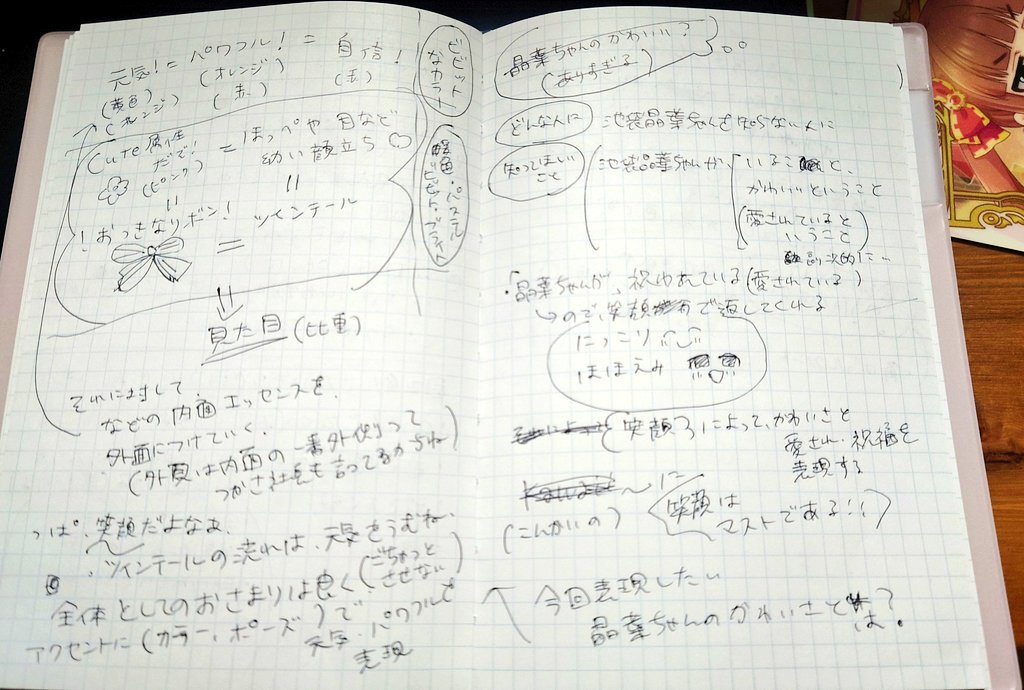 元気！＝パワフル！＝自信！
(黄色)
(オレンジ)
(オレンジ)
(赤)
(赤)
ビビット
なカラー
Cute属性
だで！
(ピンク)
＝ほっぺや目など
幼い顔立ち♡
暖色・パステル
ビビット・ブライト
||
||
！おっきなリボン！
＝
ツインテール
見た目(比重)
それに対して
などの内面エッセンスを、
外面につけていく。
(外見は内面の一番外側って
つかさ社長も言ってるからね)
っぱ、笑顔だよなぁ、
・ツインテールの流れは、元気をうむね、
全体としてのおさまりは良く(ごちゃっと
させない)
アクセントに(カラー、ポーズ)で、パワフルさ
元気
表現
晶葉ちゃんのかわいい？
(ありすぎる)
どんな人に
池袋晶葉ちゃんを知らない人に
知ってほしい
こと
池袋晶葉ちゃんが
いること、
かわいいということ
(愛されていると
いうこと)
副次的に…
・晶葉ちゃんが、祝われている(愛されている)
ので、笑顔で返してくれる
にっこり
ほほえみ
{笑顔}によって、かわいさと
愛され、祝福を
表現する
〜に
(こんかいの)
笑顔は
マストである！！
今回表現したい
晶葉ちゃんのかわいさとは？